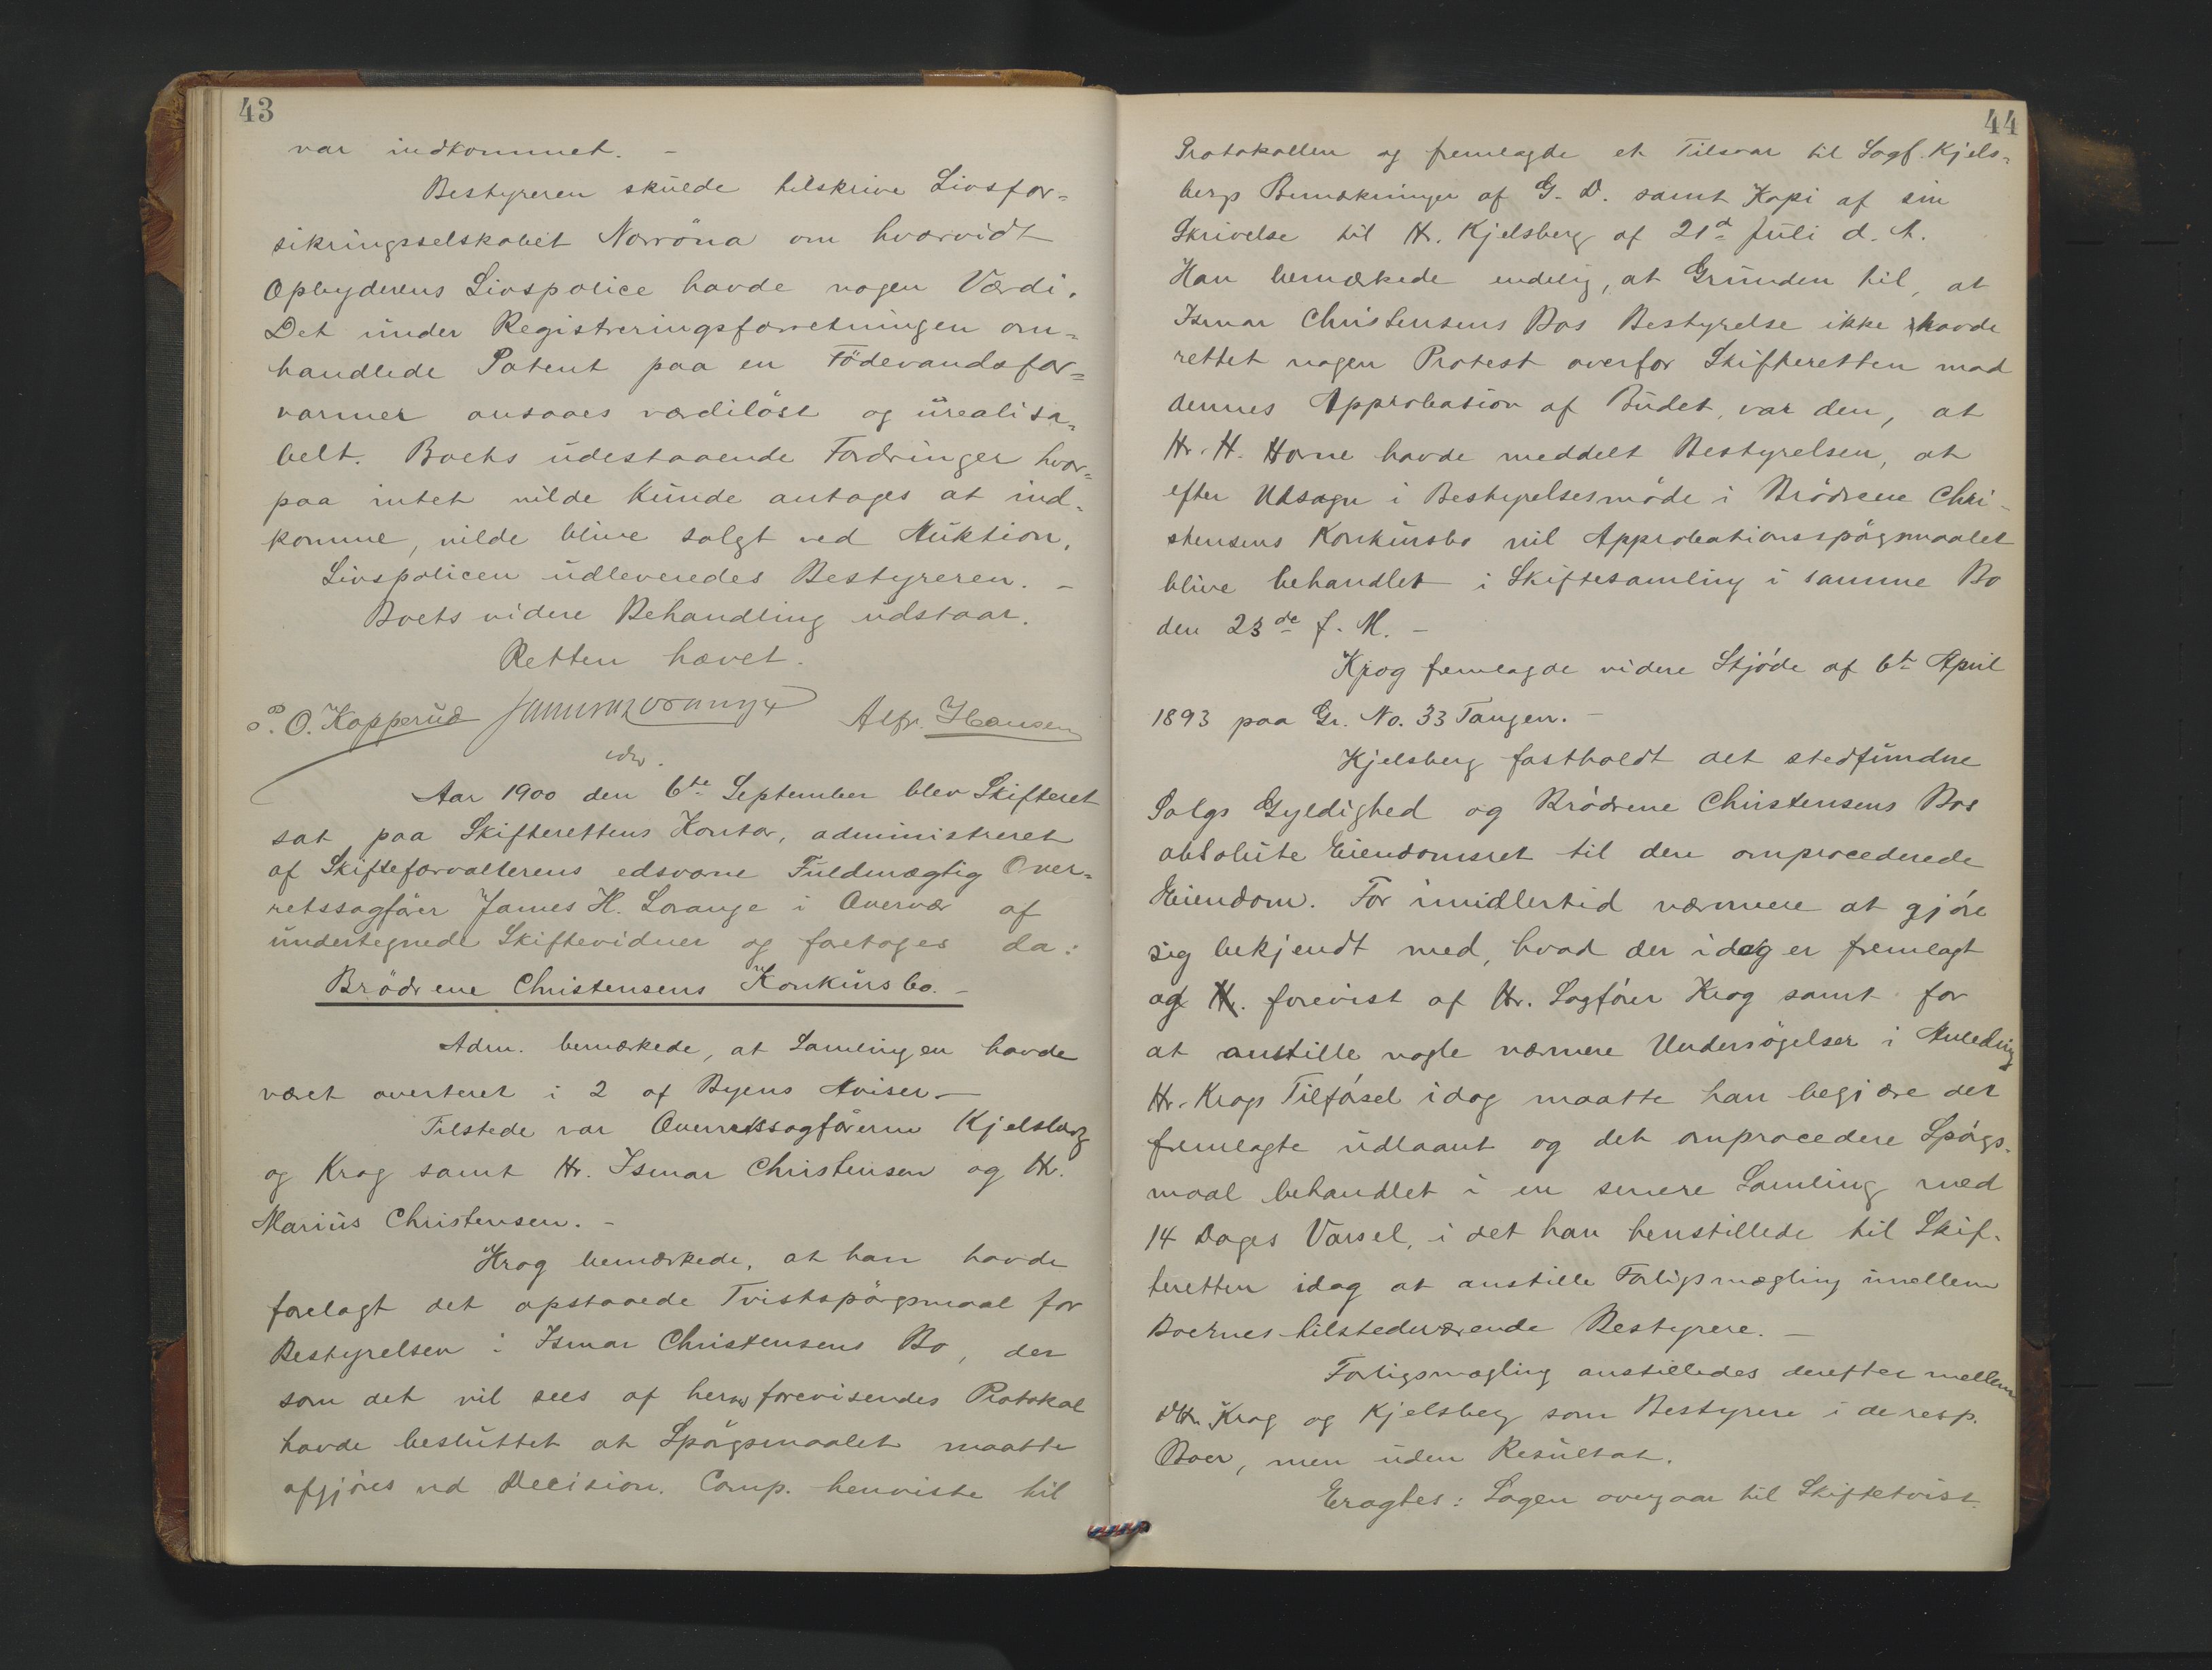 43
var indkommet. –
Bestyreren skulde tilskrive Livsfor-
sikringsselskabet Norröna om hvorvidt
Opbyderens Livspolice havde nogen Værdi.
Det under Registreringsforretningen om-
handlede Patent paa en Födevandsfor-
varmer ansaaes værdilöst og urealisa-
belt. Boets udestaaende Fordringer hvor-
paa intet vilde kunde antages at ind-
komme, vilde blive solgt ved Auktion.
Livspolicen udleveredes Bestyreren. –
Boets videre Behandling udstaar.
Retten hævet.
O. Kopperud James H Lorange Alfr. Hansen
Aar 1900 den 6te September blev Skifteret
sat paa Skifterettens Kontor, administreret
af Skifteforvalterens edsvorne Fuldmægtig Over-
retssagförer James H. Lorange i Overvær af
undertegnede Skiftevidner og foretoges da:
Brödrene Christensens Konkursbo. –
Adm. bemærkede, at Samlingen havde
været averteret i 2 af Byens Aviser. –
Tilstede var Overretssagförerne Kjelsberg
og Krog samt Hr. Ismar Christensen og Hr.
Marius Christensen. –
Krog bemærkede, at han havde
forelagt det opstaaede Tvistspörgsmaal for
Bestyrelsen i Ismar Christensens Bo, der
som det vil sees af herv. forevisendes Protokol
havde besluttet at Spörgsmaalet maatte
afgjöres ved Decision. Comp. henviste til
44
Protokollen og fremlagde et Tilsvar til Sagf. Kjels-
bergs Bemærkninger af G. D. samt Kopi af sin
Skrivelse til Hr. Kjelsberg af 21de Juli d. A.
Han bemærkede endelig, at Grunden til, at
Ismar Christensens Bos Bestyrelse ikke havde
rettet nogen Protest overfor Skifteretten mod
dennes Approbation af Budet, var den, at
Hr. H. Horne havde meddelt Bestyrelsen, at
efter Udsagn i Bestyrelsesmöde i Brödrene Chri-
stensens Konkursbo vil Approbationsspörgsmaalet
blive behandlet i Skiftesamling i samme Bo
den 23de f. M. –
Krog fremlagde videre Skjöde af 6te April
1893 paa Gr. No. 33 Tangen. –
Kjelsberg fastholdt det stedfundne
Salgs Gyldighed og Brödrene Christensens Bos
absolute Eiendomsret til den omprocederede
Eiendom. For imidlertid nærmere at gjöre
sig bekjendt med, hvad der idag er fremlagt
og forevist af Hr. Sagförer Krog samt for
at anstille nogle nærmere Undersögelser i Anledning
Hr. Krogs Tilförsel idag maatte han begjære det
fremlagte udlaant og det omprocedere Spörgs-
maal behandlet i en senere Samling med
14 Dages Varsel, i det han henstillede til Skif-
teretten idag at anstille Forligsmægling imellem
Boernes tilstedeværende Bestyrere. –
Forligsmægling anstilledes derefter mellem
DHr. Krog og Kjelsberg som Bestyrere i de resp.
Boer, men uden Resultat.
Eragtes: Sagen overgaar til Skiftetvist.